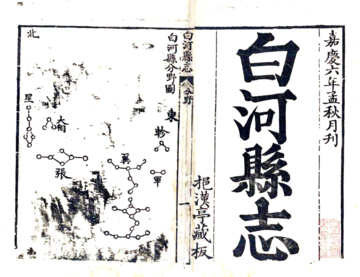 嘉慶六年孟秋月刊
白河縣志
挹漢亭藏板
白河縣志
分野
一
白河縣分野圖
東
北
軫
翼
張
星